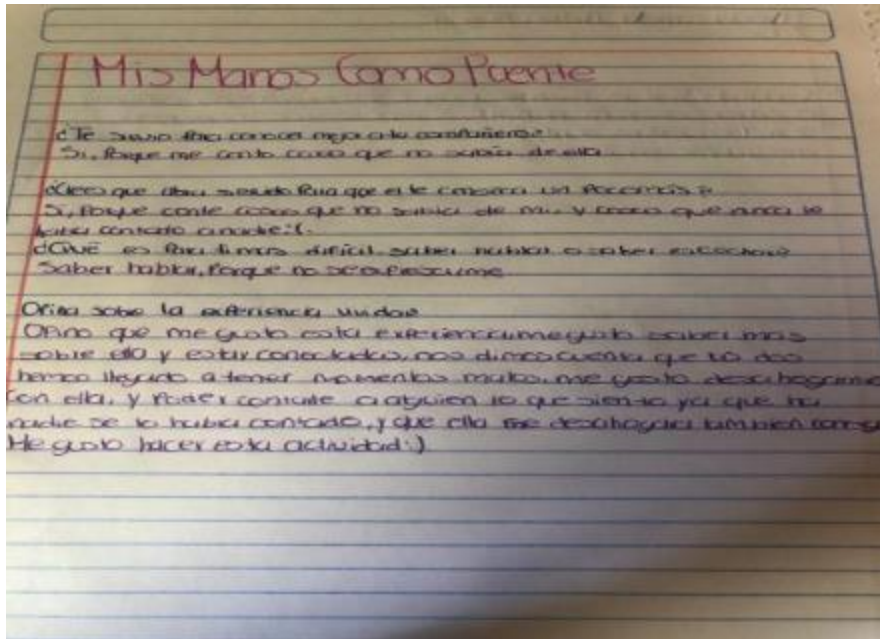 Mis Manos Como Puente
¿Te sirvio Para conocer mejor a tu compañero?
Si, Porque me conto cosas que no sabia de ella.
¿Crees que abra servido Para que el te conozca un Poco más?
Si, Porque conte cosas que no sabia de mi, y cosas que nunca le
habia contado a nadie:(.
¿QUÉ es Para ti mas dificil saber hablar o saber escuchar?
Saber hablar, Porque no se expresarme
Opina sobre la experiencia vivida
Opino que me gusto esta experiencia, me gusto saber mas
sobre ella y estar conectadas, nos dimos cuenta que las dos
hemos llegado a tener momentos malos, me gusto desahogarme
con ella, y Poder contarle a alguien lo que siento ya que ha
nadie se lo habia contado, y que ella se desahogara tambien
Me gusto hacer esta actividad:)